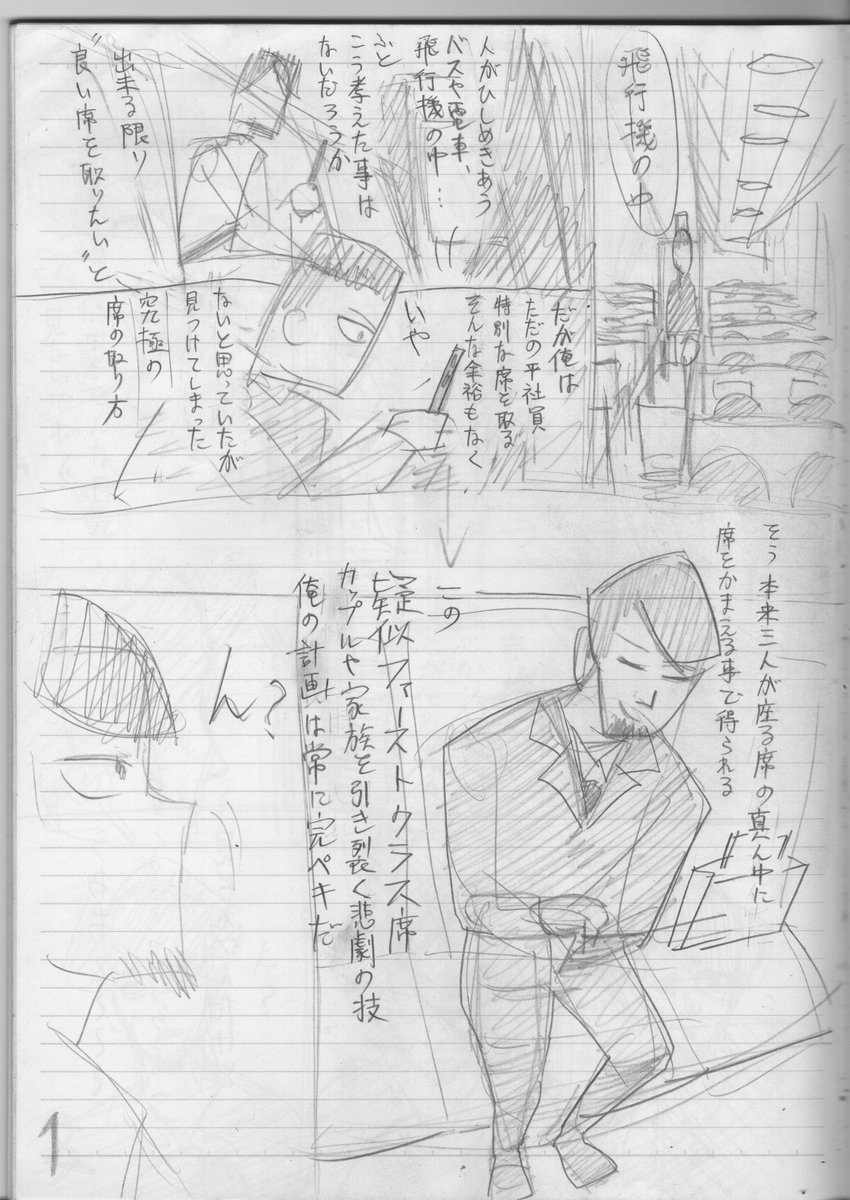 飛行機の中
人がひしめきあう
バスや電車、
飛行機の中…
ふと
こう考えた事は
ないだろうか
出来る限り
“良い席を取りたい”と
だが俺は
ただの平社員
特別な席を取る
そんな余裕もなく
いや
ないと思っていたが
見つけてしまった
究極の
席の取り方
そう本来三人が座る席の真ん中に
席をかまえる事で得られる
この
疑似ファーストクラス席
カップルや家族を引き裂く悲劇の技
俺の計画は常に完ペキだ
ん?
1